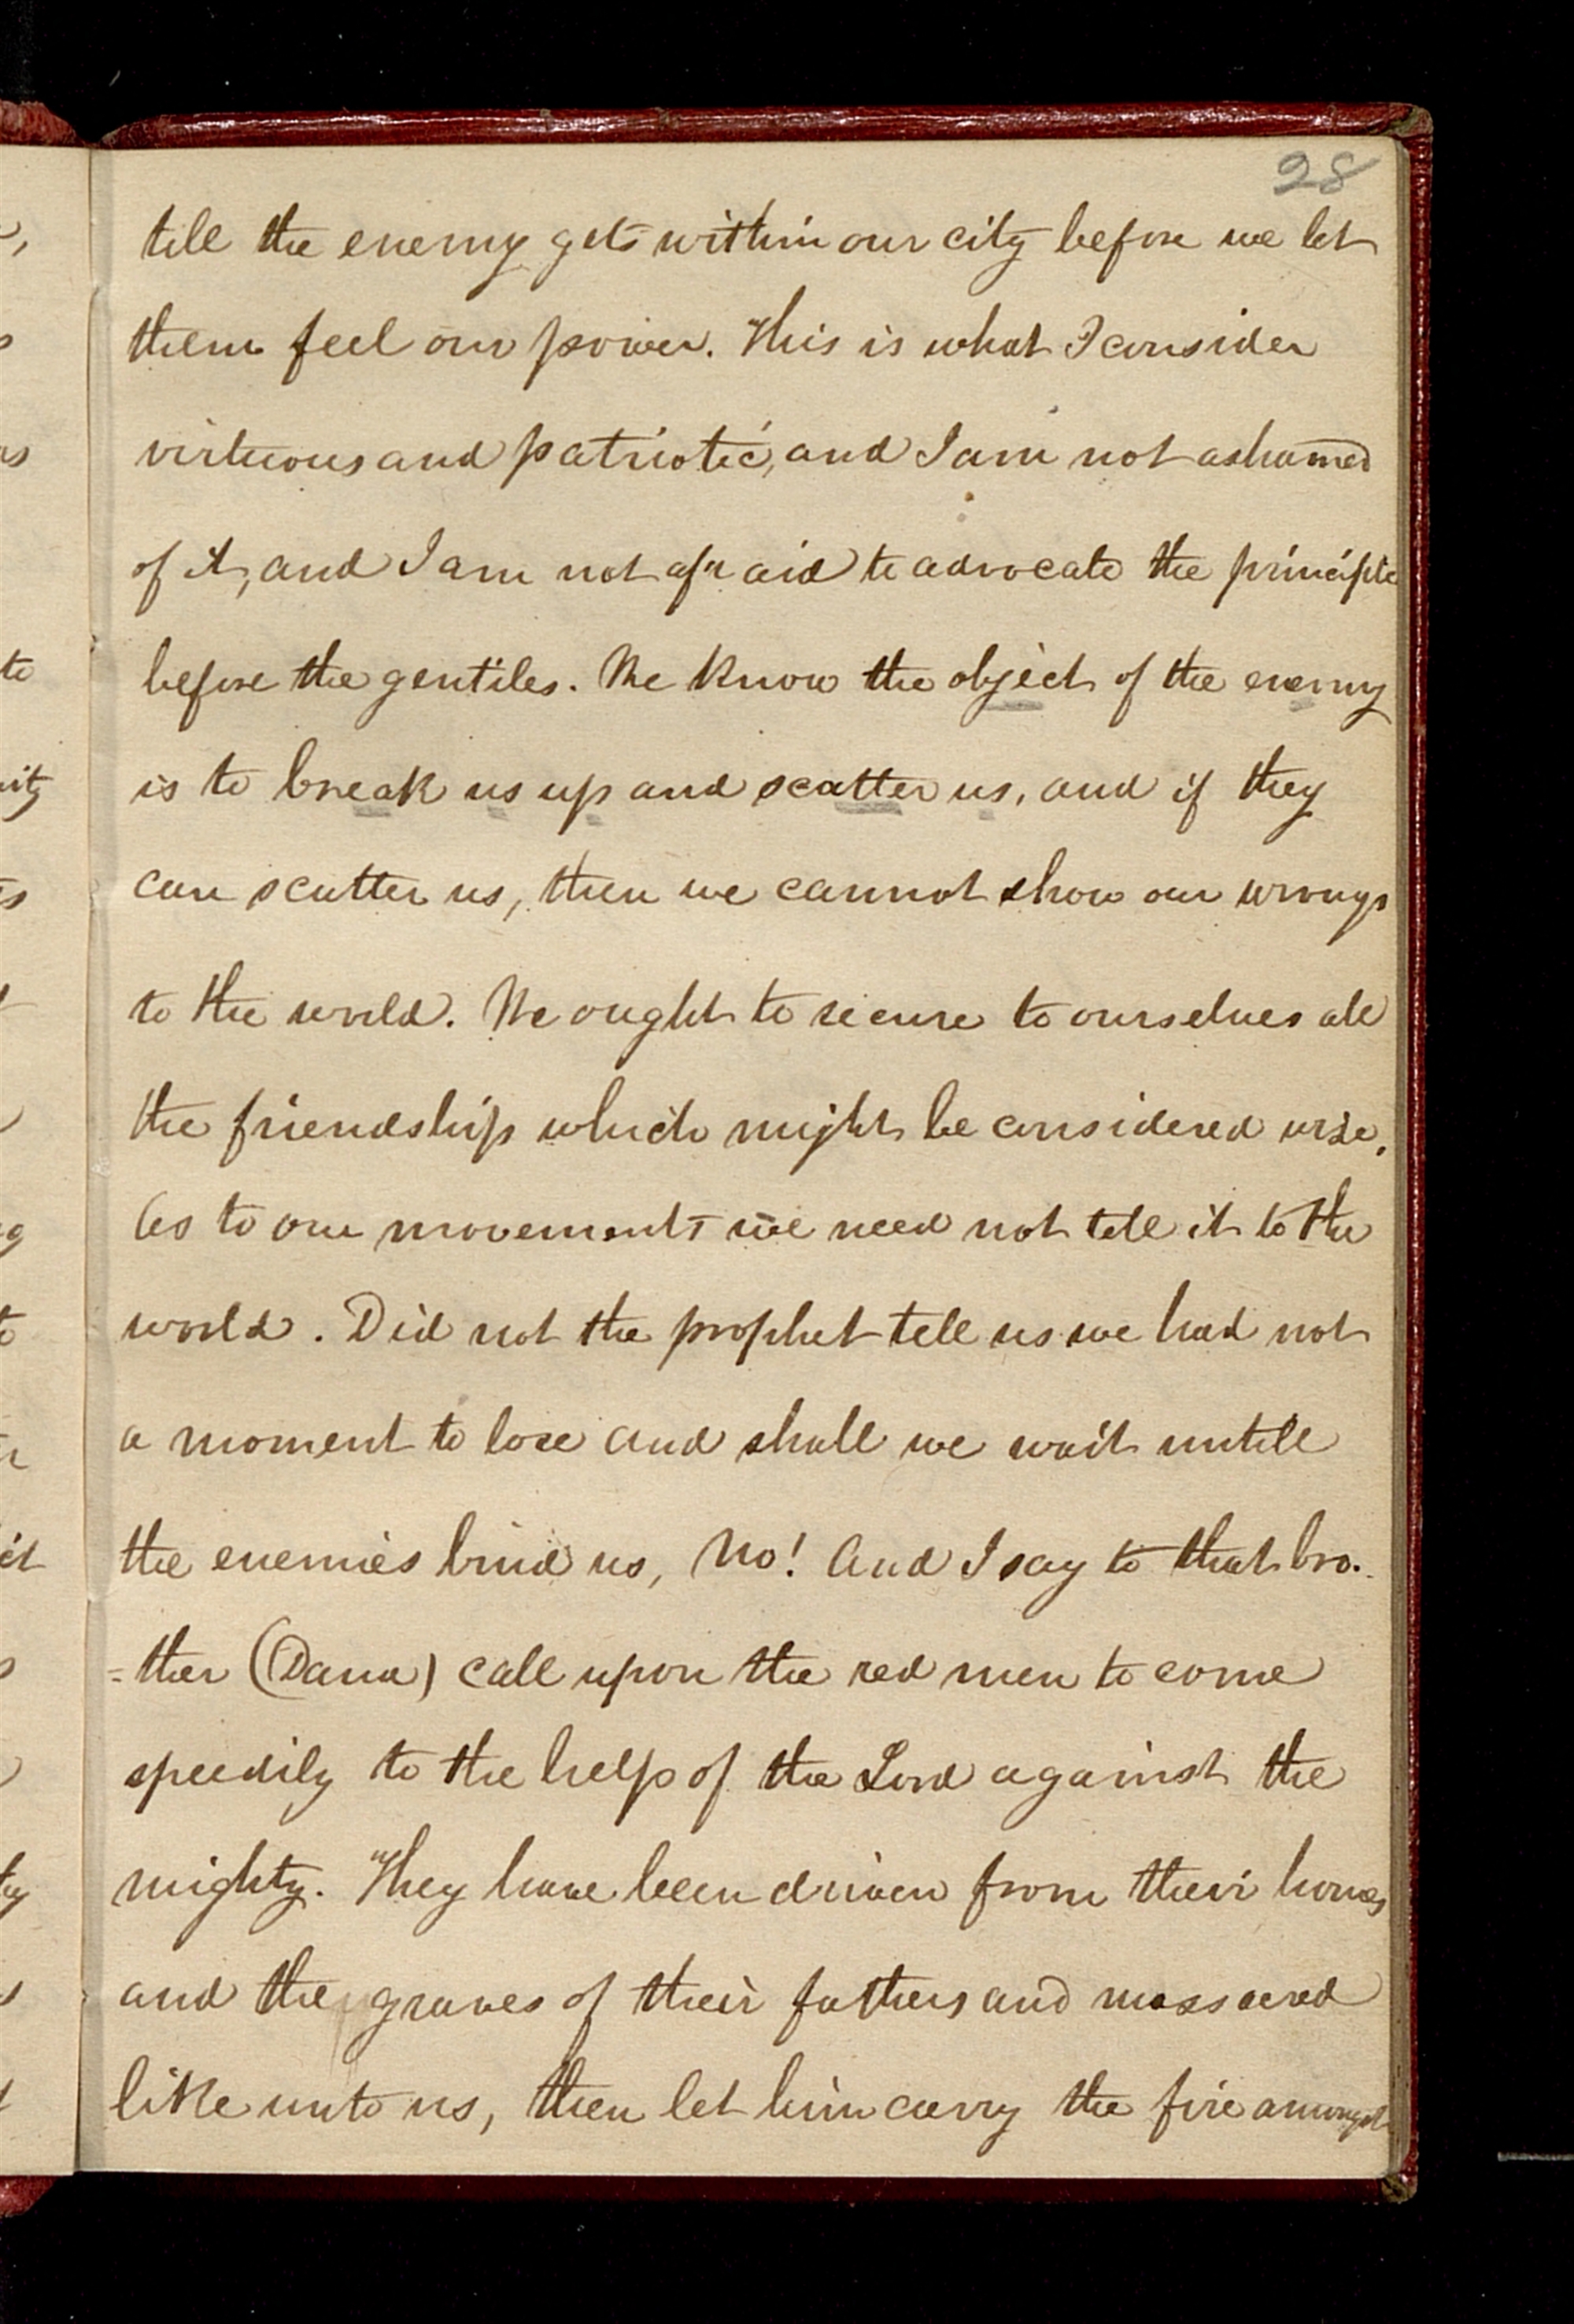 28
till the enemy gets within our city before we let
them feel our power. This is what I consider
virtuous and patriotic, and I am not ashamed
of it, and I am not afraid to advocate the principle
before the gentiles. We know the object of the enemy
is to break us up and scatter us, and if they
can scatter us, then we cannot show our wrongs
to the world. We ought to secure to ourselves all
the friendship which might be considered wise.
As to our movements we need not tell it to the
world. Did not the prophet tell us we had not
a moment to lose and shall we wait untill
the enemies bind us, No! And I say to that bro.
=ther (Dana) call upon the red men to come
speedily to the help of the Lord against the
mighty. They have been driven from their homes
and the graves of their fathers and massacred
like unto us, then let him carry the fire amongst